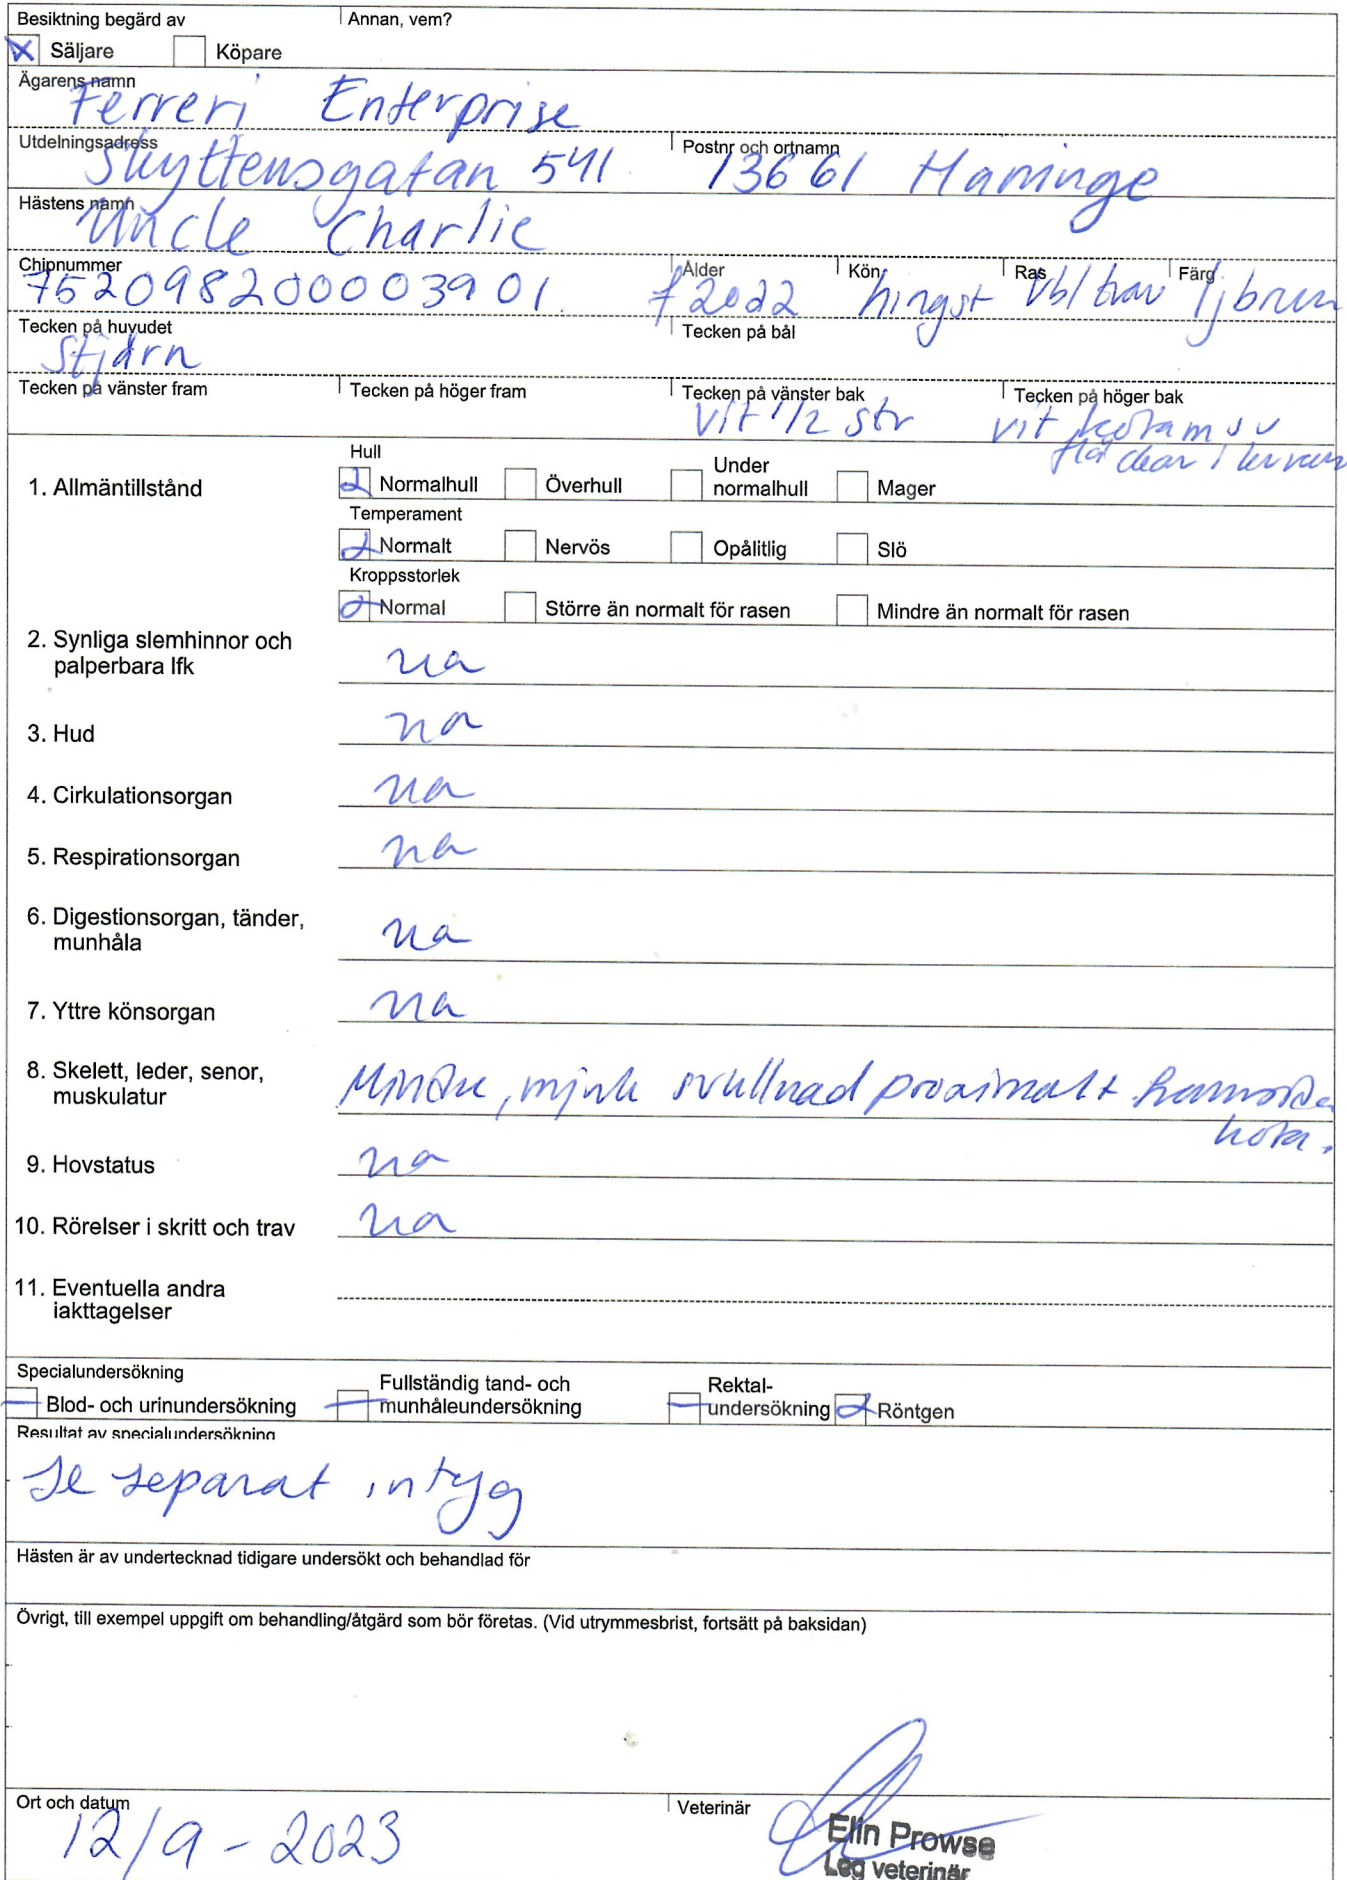 Besiktning begärd av Annan, vem?
Säljare Köpare
Ägarens namn
Ferreri Enterprise
Utdelningsadress Postnr och ortnamn
Skyttensgatan 541 136 61 Haninge
Hästens namn
Uncle Charlie
Chipnummer Ålder Kön Ras Färg
752098200003901 f 2022 hingst vbl trav ljbrun
Tecken på huvudet Tecken på bål
Stjärn
Tecken på vänster fram Tecken på höger fram Tecken på vänster bak Tecken på höger bak
vit 1/2 str vit kota m sv
fläckar i kronan
Hull
1. Allmäntillstånd Normalhull Överhull Under normalhull Mager
Temperament
Normalt Nervös Opålitlig Slö
Kroppsstorlek
Normal Större än normalt för rasen Mindre än normalt för rasen
2. Synliga slemhinnor och
palperbara lfk ua
3. Hud ua
4. Cirkulationsorgan ua
5. Respirationsorgan ua
6. Digestionsorgan, tänder,
munhåla ua
7. Yttre könsorgan ua
8. Skelett, leder, senor,
muskulatur Mindre, mjuk svullnad proximalt framsida
kota.
9. Hovstatus ua
10. Rörelser i skritt och trav ua
11. Eventuella andra
iakttagelser
Specialundersökning
Blod- och urinundersökning Fullständig tand- och munhåleundersökning Rektal-undersökning Röntgen
Resultat av specialundersökning
Se separat intyg
Hästen är av undertecknad tidigare undersökt och behandlad för
Övrigt, till exempel uppgift om behandling/åtgärd som bör företas. (Vid utrymmesbrist, fortsätt på baksidan)
Ort och datum Veterinär
12/9 - 2023 Elin Prowse
Leg veterinär